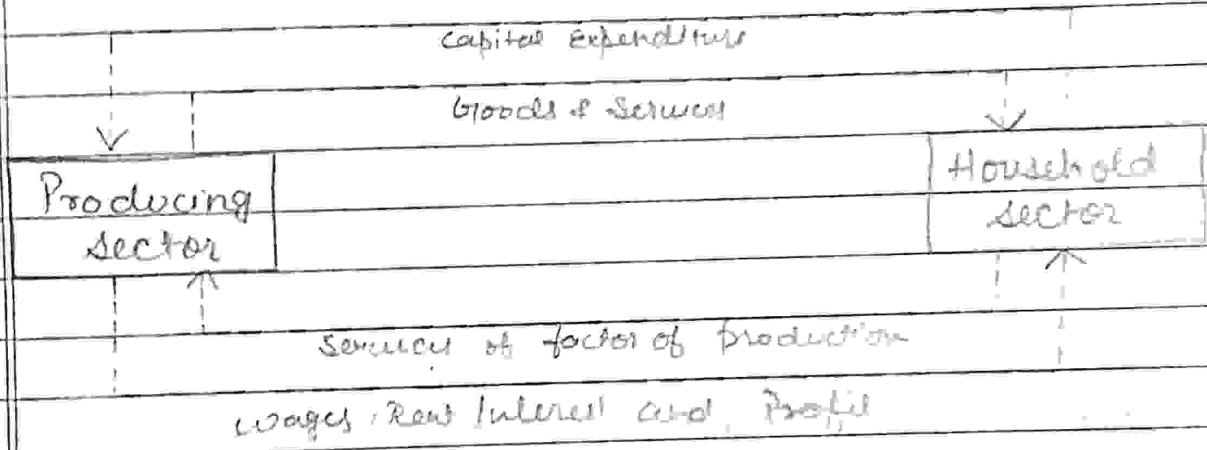 Capital Expenditure
Goods & Services
Producing
sector
Household
sector
services of factor of production
wages, Rent Interest and Profit